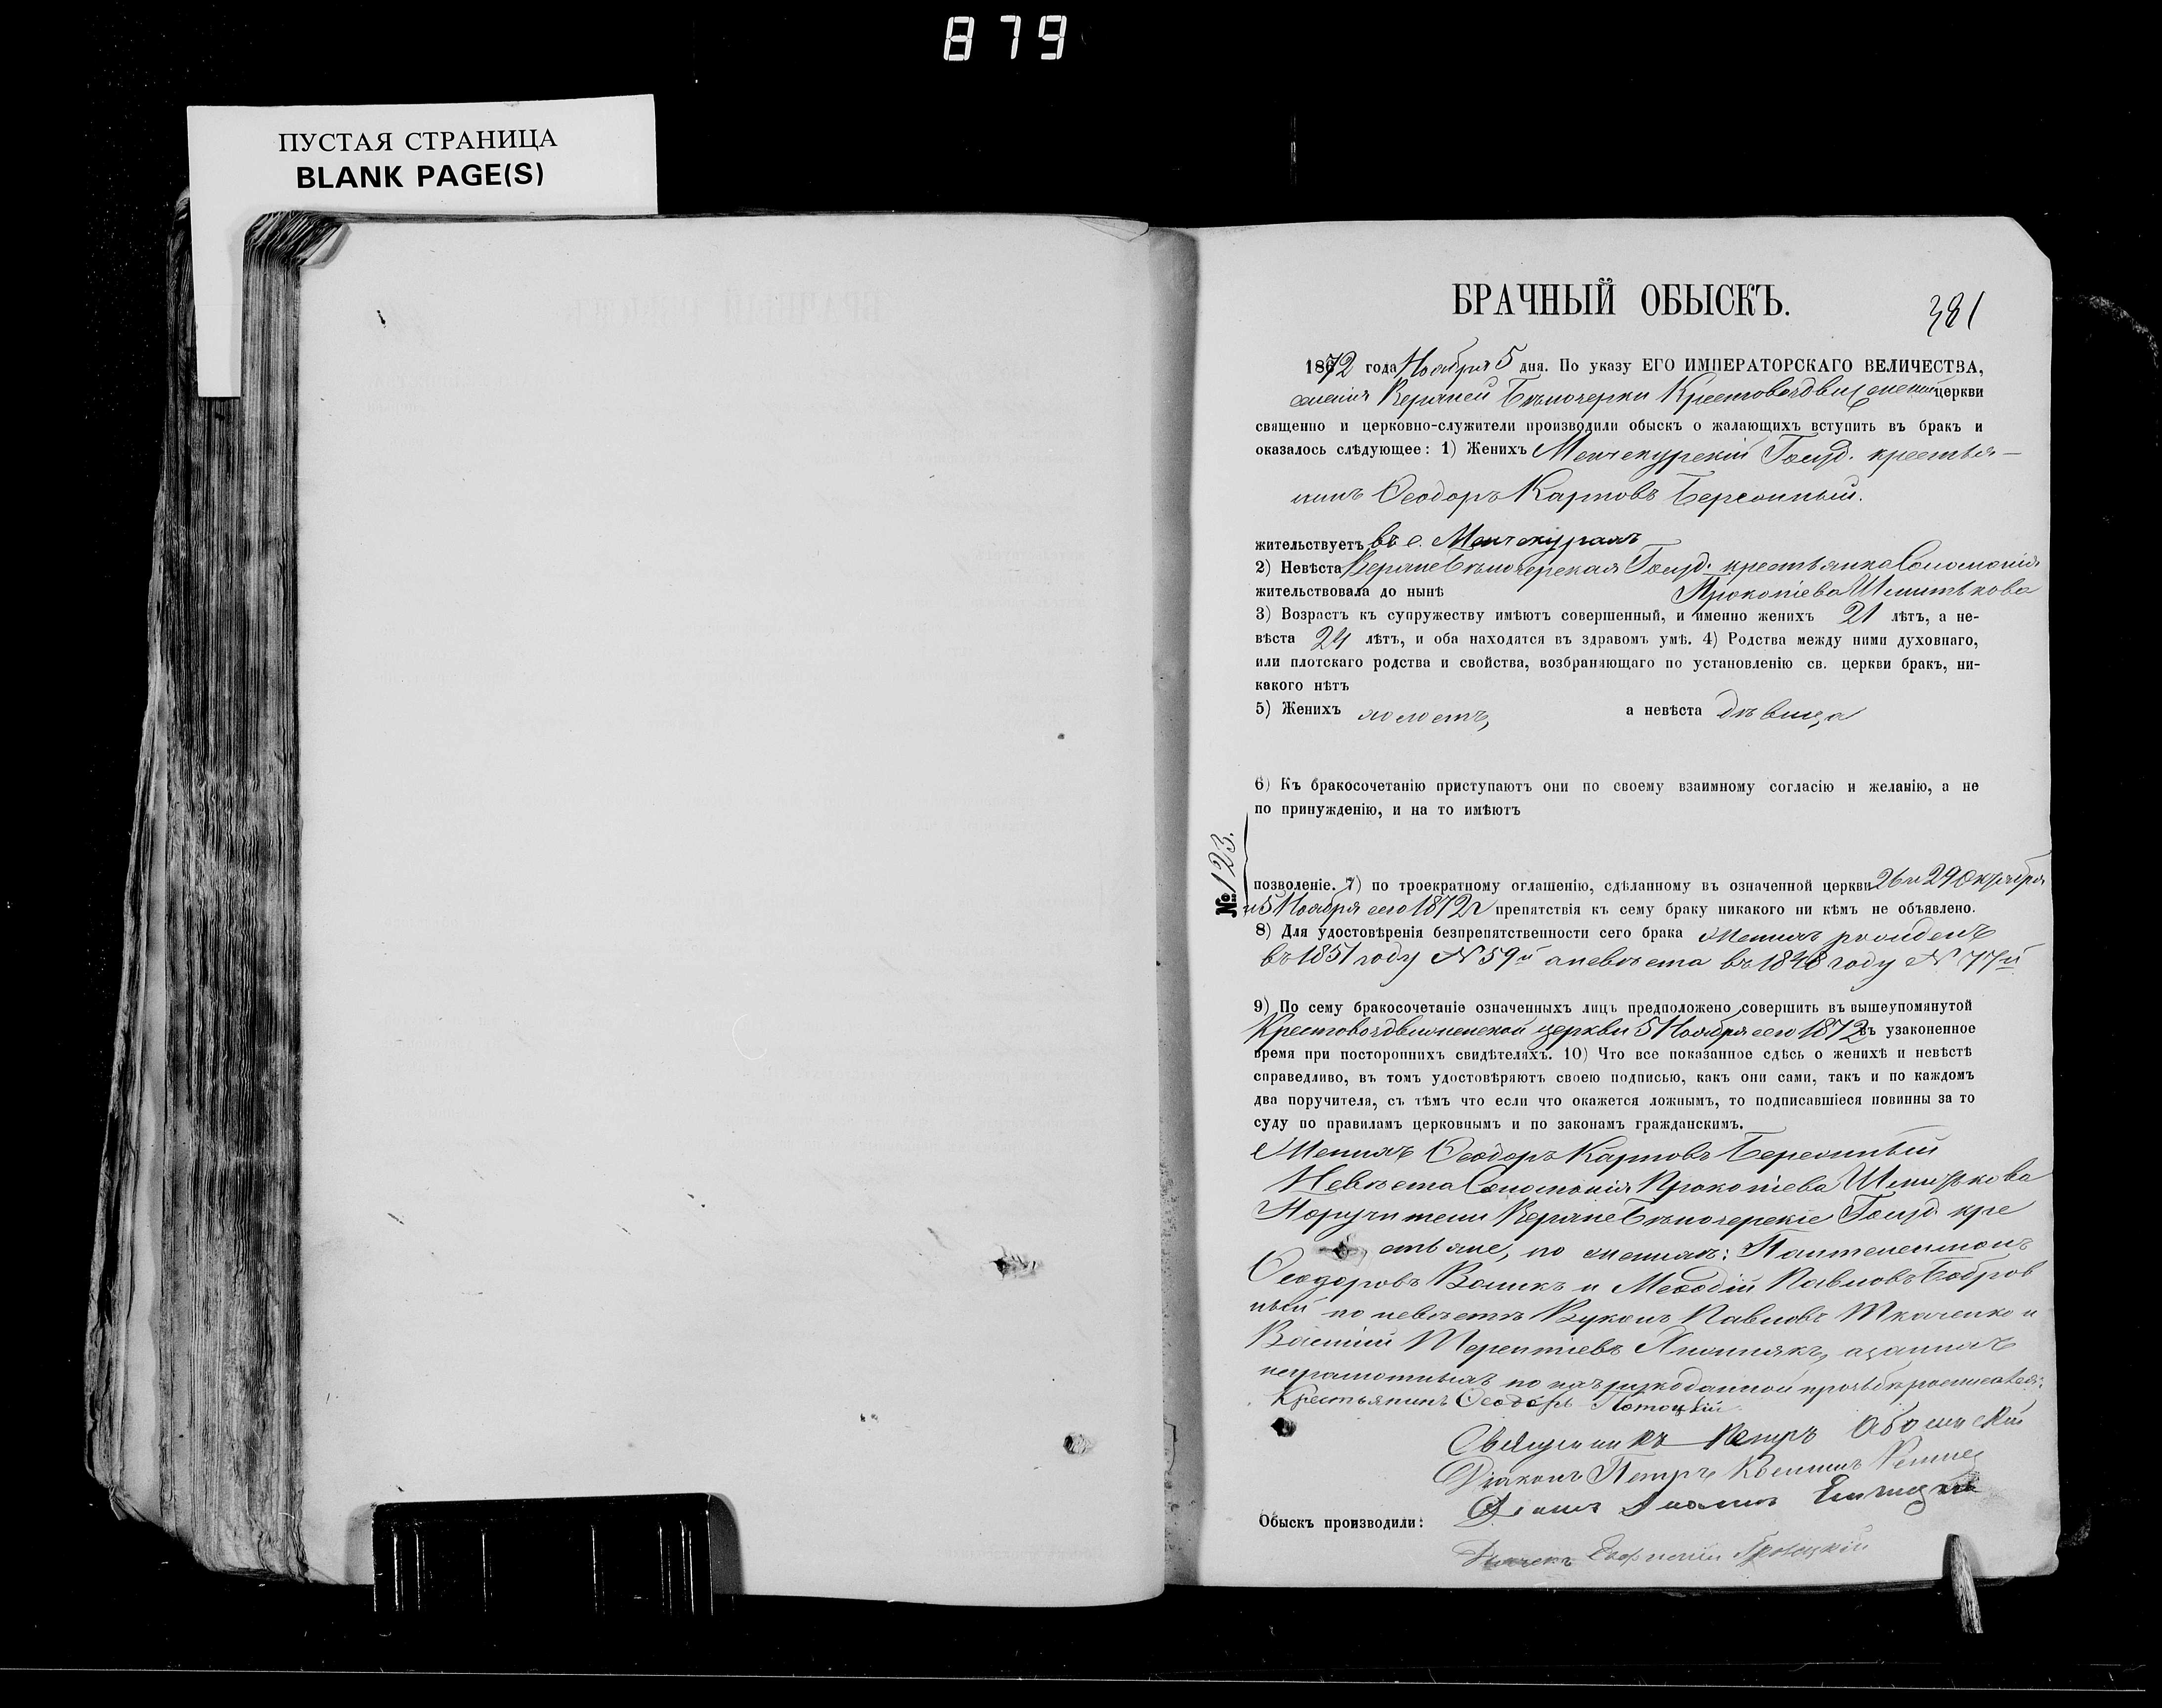 879
ПУСТАЯ СТРАНИЦА
BLANK PAGE(S)
БРАЧНЫЙ ОБЫСКЪ.
381
1872 года Ноября 5 дня. По указу ЕГО ИМПЕРАТОРСКАГО ВЕЛИЧЕСТВА,
селенія Верхней Бѣлозерки Крестовоздвиженской церкви
священно и церковно-служители производили обыскъ о жалающихъ вступить въ бракъ и
оказалось слѣдующее: 1) Женихъ Менчекурскій Госуд. крестья-
нинъ Ѳеодоръ Карповъ Берсонный.
жительствуетъ въ с. Менчекурахъ
2) Невѣста Верхнебѣлозерская Госуд. крестьянка Соломонія
жительствовала до нынѣ Прокопіева
3) Возрастъ къ супружеству имѣютъ совершенный, и именно женихъ 21 лѣтъ, а не-
вѣста 24 лѣтъ, и оба находятся въ здравомъ умѣ. 4) Родства между ними духовнаго,
или плотскаго родства и свойства, возбраняющаго по установленію св. церкви бракъ, ни-
какого нѣтъ
5) Женихъ холостъ, а невѣста дѣвица
6) Къ бракосочетанію приступаютъ они по своему взаимному согласію и желанію, а не
по принужденію, и на то имѣютъ
№ 123.
позволеніе. 7) по троекратному оглашенію, сдѣланному въ означенной церкви 26 и 29 Октября
и 5 Ноября сего 1872 г препятствія къ сему браку никакого ни кѣмъ не объявлено.
8) Для удостовѣренія безпрепятственности сего брака Женихъ рожденъ
въ 1851 году N 59й а невѣста въ 1848 году N 77й
9) По сему бракосочетаніе означенныхъ лицъ предположено совершить въ вышеупомянутой
Крестовоздвиженской церкви 5 Ноября сего 1872 въ узаконенное
время при постороннихъ свидѣтеляхъ. 10) Что все показанное сдѣсь о женихѣ и невѣстѣ
справедливо, въ томъ удостовѣряютъ своею подписью, какъ они сами, такъ и по каждомъ
два поручителя, съ тѣмъ что если что окажется ложнымъ, то подписавшіеся повинны за то
суду по правиламъ церковнымъ и по законамъ гражданскимъ.
Женихъ Ѳеодоръ Карповъ
Невѣста Соломонія Прокопіева
Поручители Верхнебѣлозерскіе Госуд. кре
стьяне, по женихѣ: Пантелеимонъ
Ѳеодоровъ Воликъ и Меѳодій Павловъ Бобров
ный по невѣстѣ Вуколъ Павловъ Ткаченко и
Василій Терентіевъ а за нихъ
неграмотныхъ по ихъ рукоданной прозьбѣ росписался:
Крестьянинъ Ѳеодоръ Потоцкій
Священникъ Петръ
Діаконъ Петръ
Обыскъ производили: